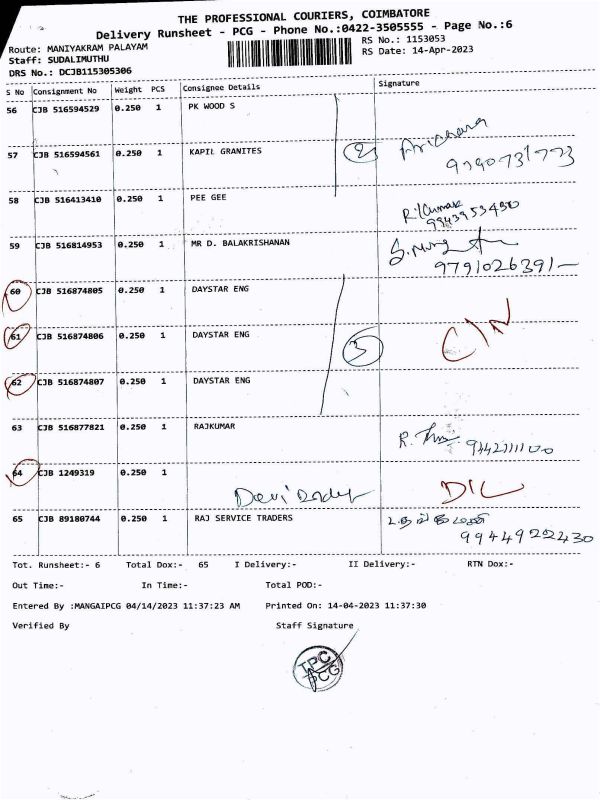 THE PROFESSIONAL COURIERS, COIMBATORE
Delivery Runsheet - PCG - Phone No.:0422-3505555 - Page No.:6
Route: MANIYAKRAM PALAYAM
RS No.: 1153053
Staff: SUDALIMUTHU
RS Date: 14-Apr-2023
DRS No.: DCJB115305306
S No Consignment No Weight PCS Consignee Details Signature
56 CJB 516594529 0.250 1 PK WOOD S
57 CJB 516594561 0.250 1 KAPIL GRANITES 2
9790731773
58 CJB 516413410 0.250 1 PEE GEE
59 CJB 516814953 0.250 1 MR D. BALAKRISHANAN
9791026391
60 CJB 516874805 0.250 1 DAYSTAR ENG
61 CJB 516874806 0.250 1 DAYSTAR ENG 3 C/N
62 CJB 516874807 0.250 1 DAYSTAR ENG
63 CJB 516877821 0.250 1 RAJKUMAR
64 CJB 1249319 0.250 1
D/L
65 CJB 89180744 0.250 1 RAJ SERVICE TRADERS
9944922430
Tot. Runsheet:- 6 Total Dox:- 65 I Delivery:- II Delivery:- RTN Dox:-
Out Time:- In Time:- Total POD:-
Entered By :MANGAIPCG 04/14/2023 11:37:23 AM Printed On: 14-04-2023 11:37:30
Verified By Staff Signature
TPC
PCG